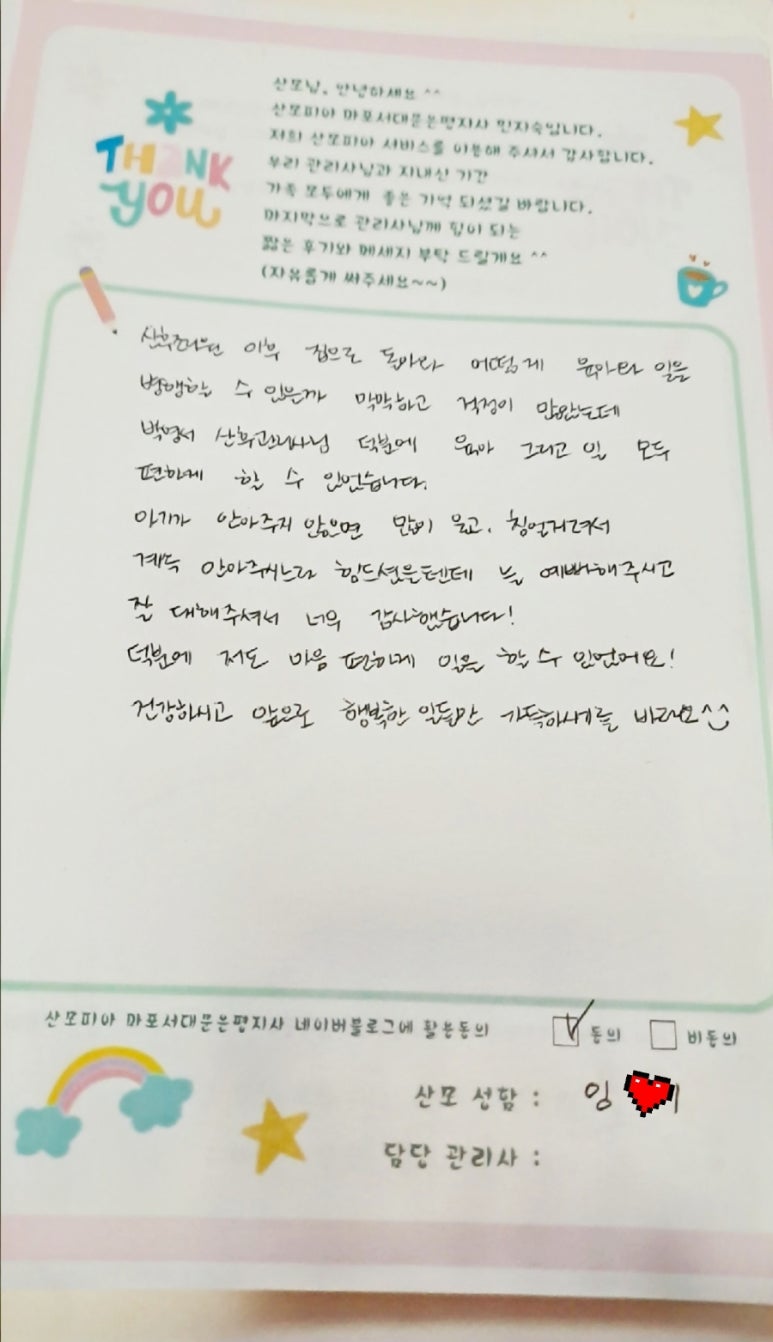 THANK
you
산모님, 안녕하세요 ^^
산모피아 마포서대문은평지사 민지숙입니다.
저희 산모피아 서비스를 이용해 주셔서 감사합니다.
우리 관리사님과 지내신 기간
가족 모두에게 좋은 기억 되셨길 바랍니다.
마지막으로 관리사님께 힘이 되는
짧은 후기와 메세지 부탁 드릴게요 ^^
(자유롭게 써주세요~~)
산후조리원 이후 집으로 돌아와 어떻게 육아와 일을
병행할 수 있을까 막막하고 걱정이 많았는데
박영서 산후관리사님 덕분에 육아 그리고 일 모두
편하게 할 수 있었습니다.
아기가 안아주지 않으면 많이 울고, 칭얼거려서
계속 안아주시느라 힘드셨을텐데 늘 예뻐해주시고
잘 대해주셔서 너무 감사했습니다!
덕분에 저도 마음 편하게 일을 할 수 있었어요!
건강하시고 앞으로 행복한 일들만 가득하시기를 바래요^^
산모피아 마포서대문은평지사 네이버블로그에 활용동의 동의 비동의
산모 성함 : 임
담당 관리사 :